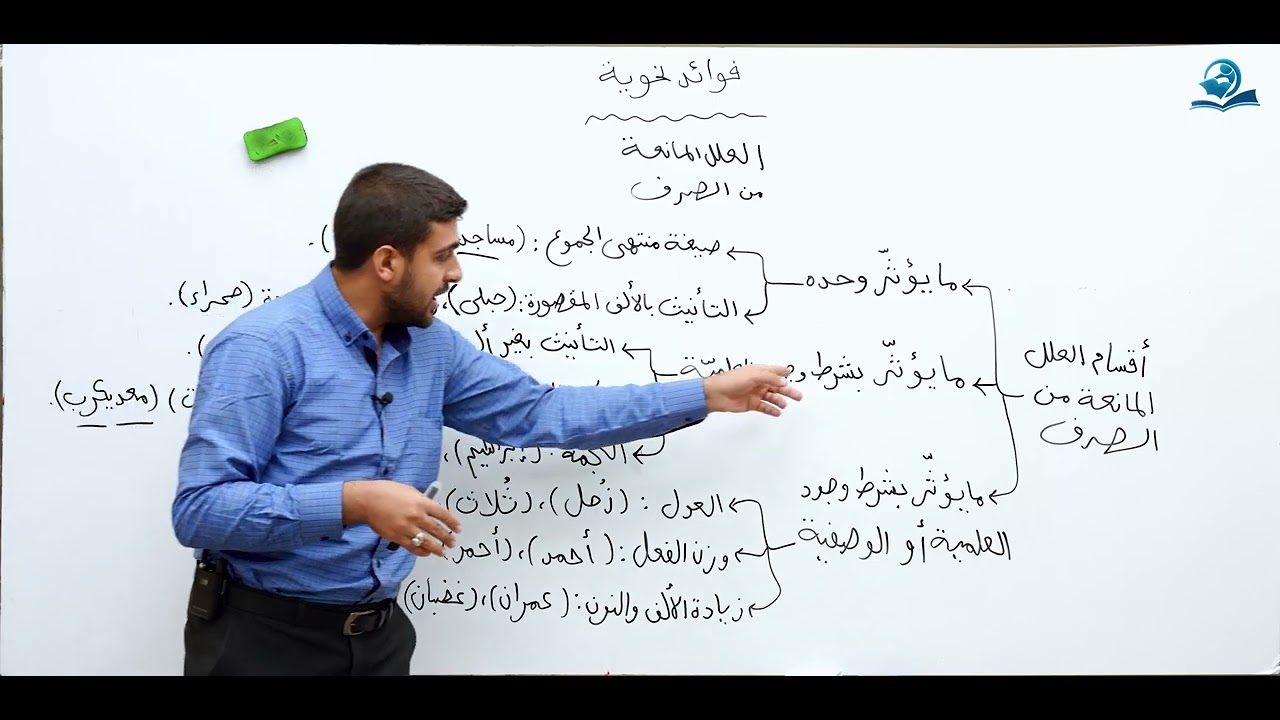 فوائد نحوية
العلل المانعة
من الصرف
أقسام العلل
المانعة من
الصرف
ما يؤثّر وحده
صيغة منتهى الجموع : (مساجد
).
التأنيث بالألف المقصورة : (حبلى)،
(صحراء).
ما يؤثّر بشرط
التأنيث بغير
).
) (معديكرب).
العجمة : (إبراهيم)،
ما يؤثّر بشرط وجود
العلمية أو الوصفية
العدل : (زُحل)، (ثُلاث)
وزن الفعل : (أحمد)، (أحمر)
زيادة الألف والنون : (عمران)، (غضبان)